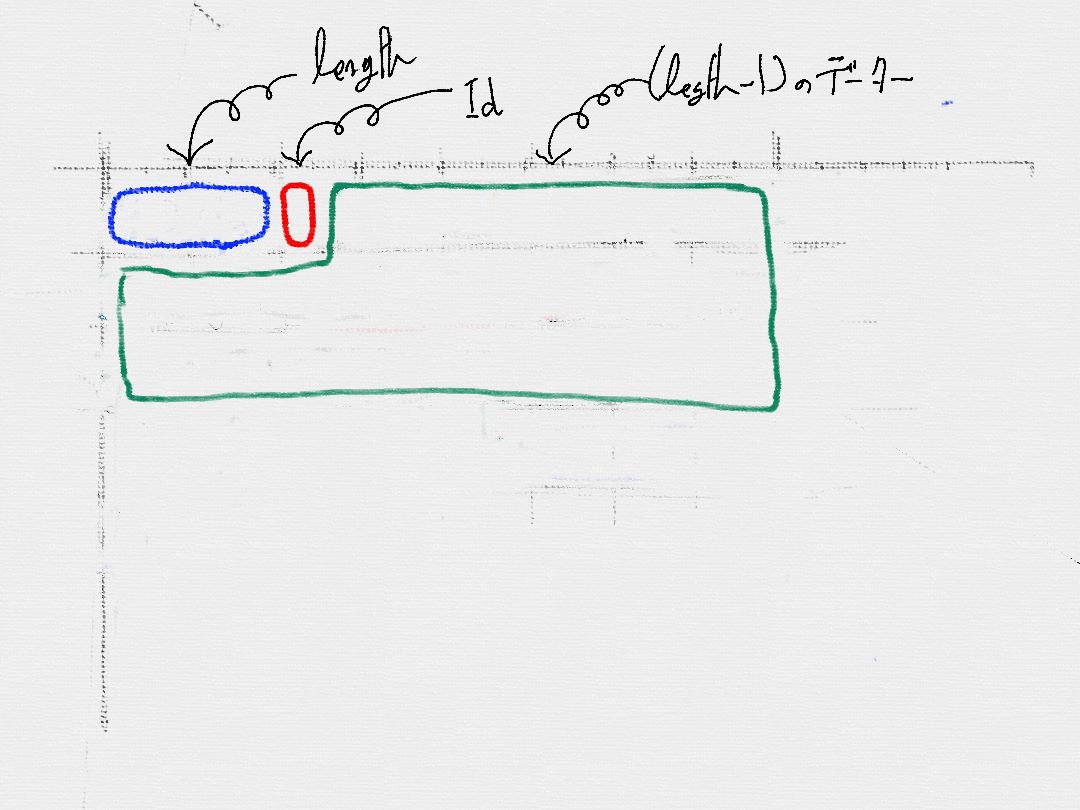 length
Id
(length-1)のデータ